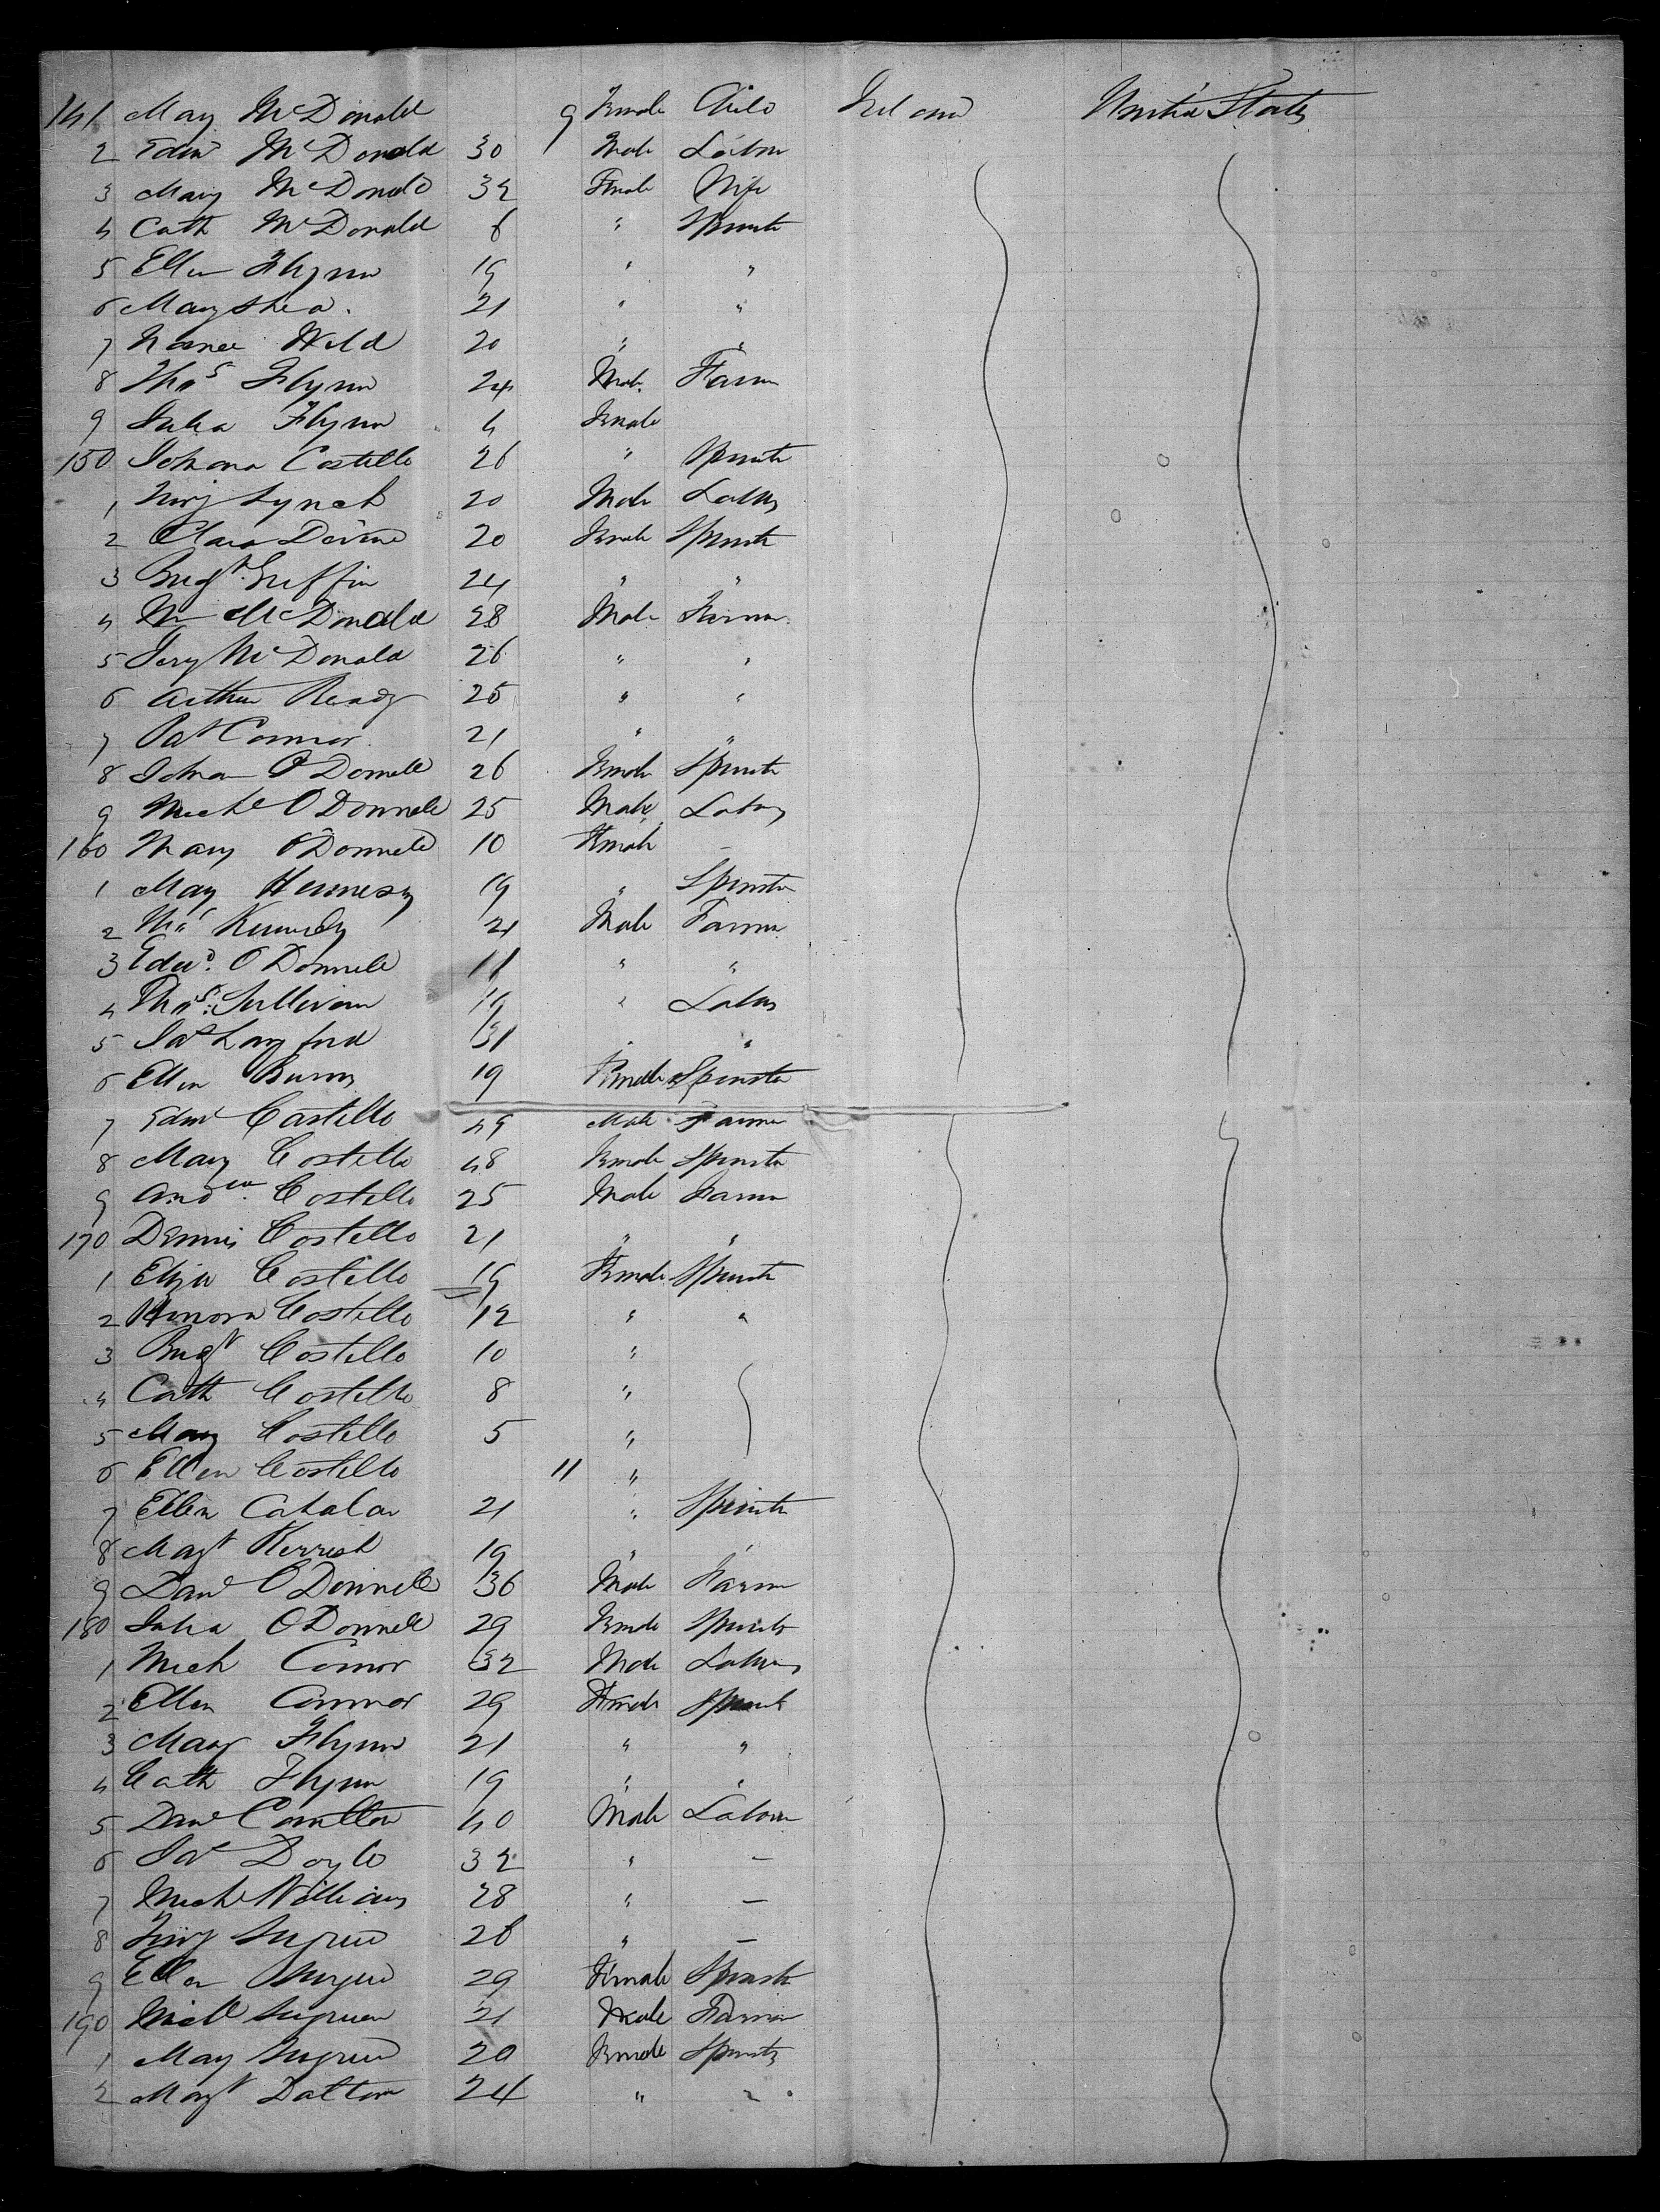 141 Mary McDonald 9 Female Child Ireland United States
2 Edmd McDonald 30 Male Labour
3 Mary McDonald 32 Female Wife
4 Cath McDonald 6 " Spinster
5 Ellen Flynn 19 " "
6 Mary Shea. 21 " "
7 20 " "
8 Thos Flynn 24 Male Farmer
9 Julia Flynn 4 Female
150 Johana Costello 26 " Spinster
1 Lynch 20 Male Labour
2 Clara Devine 20 Female Spinster
3 Bridgt Griffin 24 " "
4 Wm McDonald 28 Male Farmer
5 Jery McDonald 26 " "
6 Arthur Ready 25 " "
7 Pat Connor. 21 " "
8 Johana O'Donnell 26 Female Spinster
9 Michl O'Donnell 25 Male Labour
160 Mary O'Donnell 10 Female -
1 Mary Hennesy 19 " Spinster
2 Thos Kennedy 21 Male Farmer
3 Edwd. O'Donnell 11 " "
4 Thos. Sullivan 19 " Labour
5 Jas Langford 31 " "
6 Ellen Burns 19 Female Spinster
7 Edmd Costello 49 Male Farmer
8 Mary Costello 48 Female Spinster
9 Andrew Costello 25 Male Farmer
170 Dennis Costello 21 " "
1 Eliza Costello 19 Female Spinster
2 Honora Costello 12 " "
3 Bridgt Costello 10 "
4 Cath Costello 8 "
5 Mary Costello 5 "
6 Ellen Costello 11 "
7 Ellen Cahalan 21 " Spinster
8 Magt 19 " "
9 Danl O'Donnell 36 Male Farmer
180 Julia O'Donnell 29 Female Spinster
1 Mich Connor 32 Male Labour
2 Ellen Connor 29 Female Spinster
3 Mary Flynn 21 " "
4 Cath Flynn 19 " "
5 Danl 40 Male Labour
6 Jas Doyle 32 " -
7 Michl Williams 28 " -
8 Sugrue 26 " -
9 Ellen Sugrue 29 Female Spinster
190 Michl Sugrue 21 Male Farmer
1 Mary Sugrue 20 Female Spinster
2 Magt Dalton 24 " "